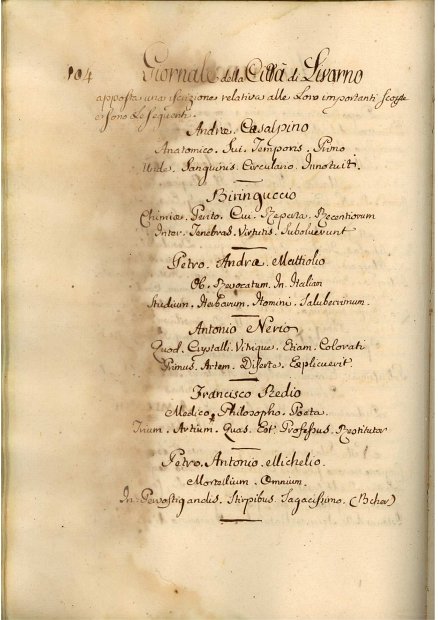 104 Giornale della Città di Livorno
apposta una iscrizione relativa alle Loro importanti scope
e sono Le seguenti.
Andreæ Cæsalpino
Anatomico . Sui . Temporis . Primo
Unde . Sanguinis . Circulatio . Innotuit .
Biringuccio
Chimiæ . Perito . Cui . Reperta . Recentiorum
Inter . Tenebras . Virtutis . Suboluerunt
Petro . Andreæ . Mattiolio
Ob . Revocatum . In . Italian
Studium . Herbarum . Homini . Saluberrimum .
Antonio Nerio
Quod . Crystalli . Vitrique . Etiam . Colorati
Primus . Artem . Diserte . Explicuerit .
Francisco Redio
Medico . Philosopho . Poeta
Trium . Artium . Quas . Est . Professus . Restitutor
Petro . Antonio . Michelio .
Mortalium . Omnium .
In . Pervestigandis . Stirpibus . Sagacissimo .